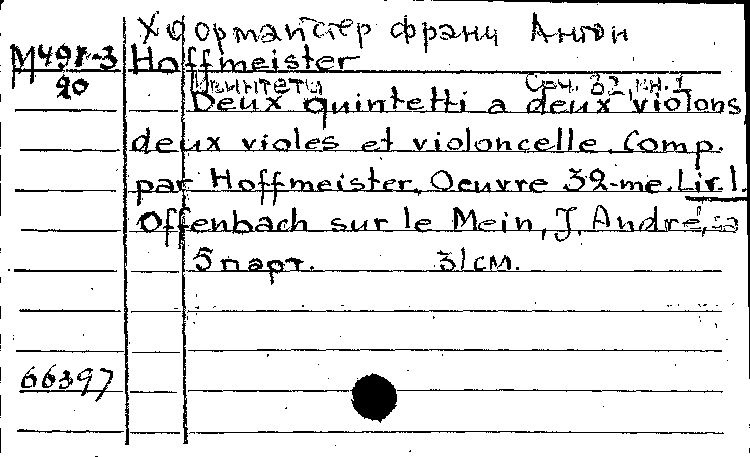 Хофрмайстер Франц Антон
М491-3 Hoffmeister
20 Квинтеты Соч. 32, кн. 1
Deux quintetti a deux violons
deux violes et violoncelle. Comp.
par Hoffmeister, Oeuvre 32-me. Liv. 1.
Offenbach sur le Mein, J. André, sa
5 парт. 31 см.
66397